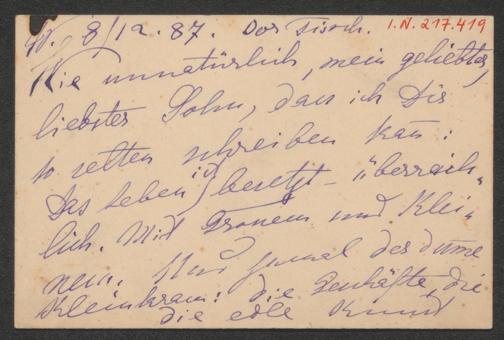 8/12.87. Dor Tisch. I.N. 217.419
Wie unnatürlich, mein geliebter,
liebster Sohn, dass ich Dir
so selten schreiben kan:
Das Leben ist besetzt - überreich-
lich. Mit Grossem und Klei-
nem. Nur der dume
Kleinkram: die Geschäfte, die
die edle Kunst